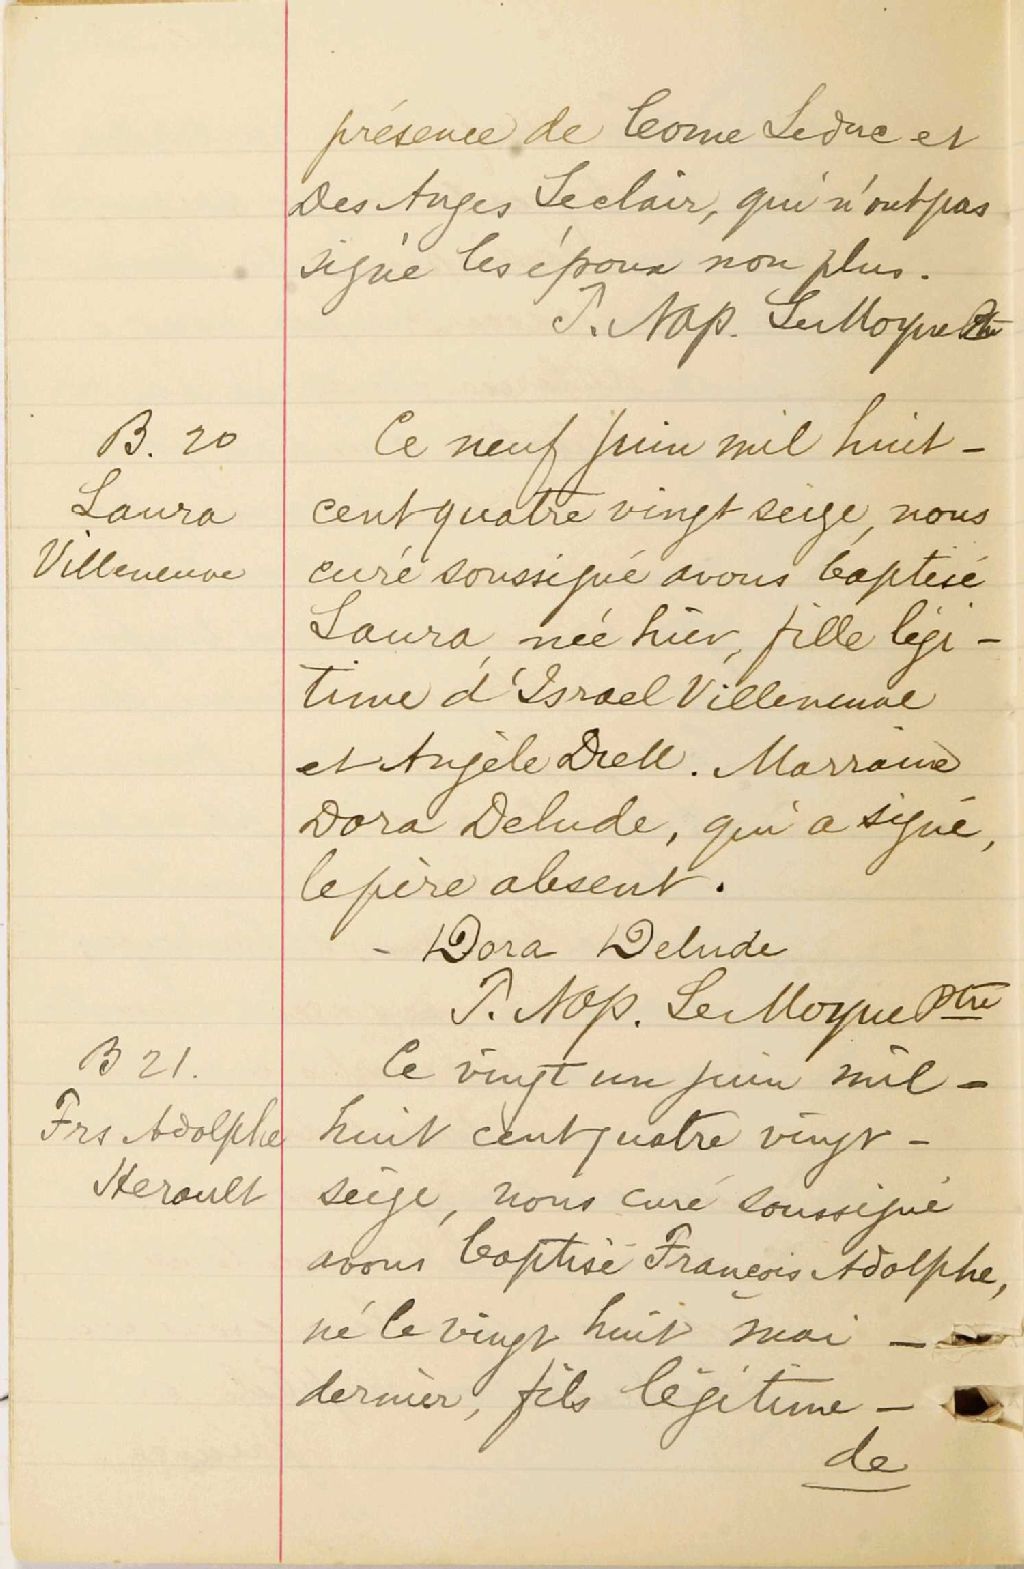 présence de Come Leduc et
Des Anges Leclair, qui n'ont pas
signé les époux non plus.
T. Nap. LeMoyne Ptre
B. 20
Laura
Villeneuve
Ce neuf juin mil huit -
cent quatre vingt seize, nous
curé soussigné avons baptisé
Laura, née hier, fille légi -
time d'Israel Villeneuve
et Angèle Drell. Marraine
Dora Delude, qui a signé,
le père absent.
- Dora Delude
T. Nap. LeMoyne Ptre
B 21.
Frs Adolphe
Herault
Ce vingt un juin mil -
huit cent quatre vingt -
seize, nous curé soussigné
avons baptisé François Adolphe,
né le vingt huit mai -
dernier, fils légitime -
de